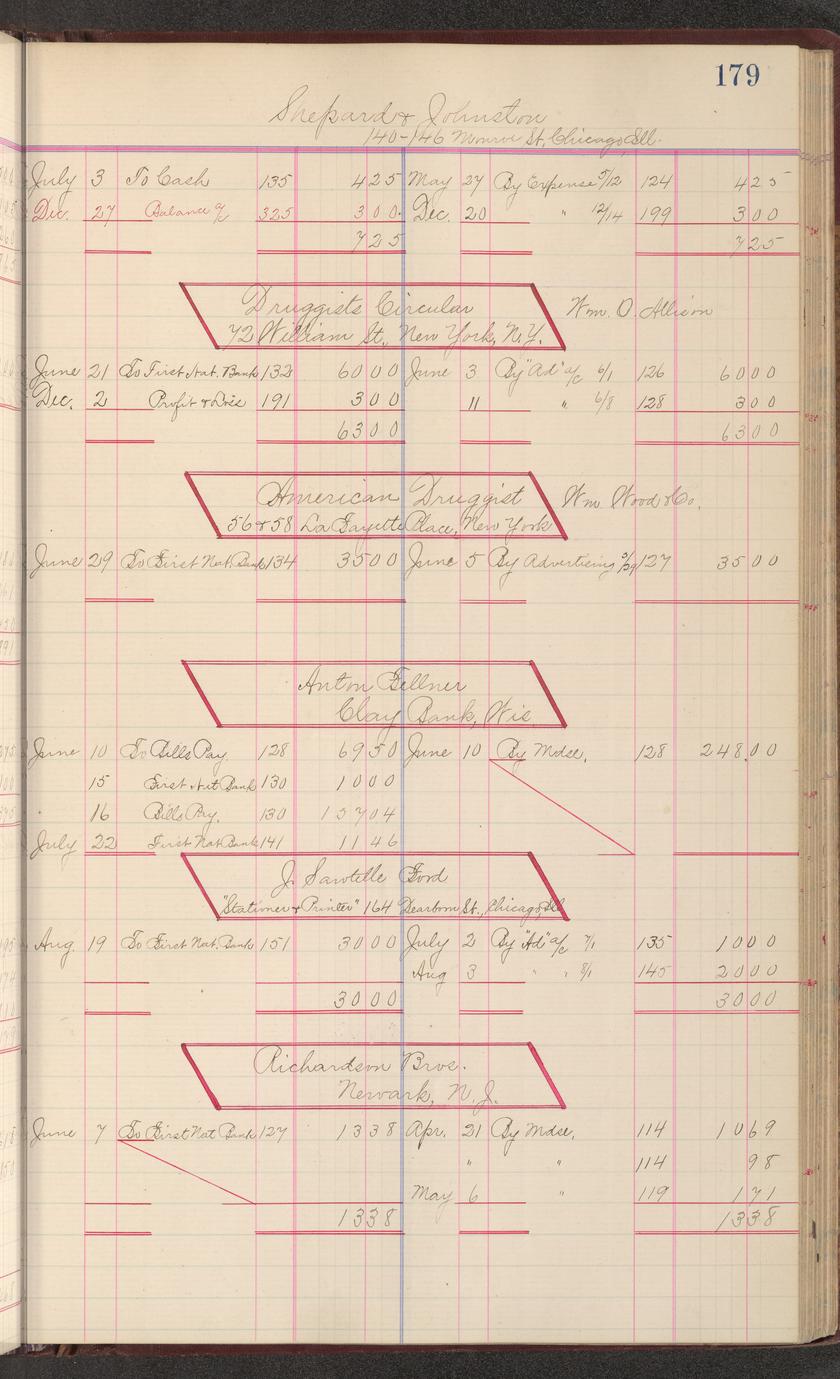 179
Shepard & Johnston
140-146 Monroe St, Chicago, Ill.
July 3 To Cash 135 425 May 27 By Expense 5/12 124 425
Dec. 27 Balance a/c 325 300 Dec. 20 " 12/14 199 300
725 725
Druggists Circular Wm. O. Allison
72 William St., New York, N.Y.
June 21 To First Nat. Bank 132 6000 June 3 By "Ad" a/c 6/1 126 6000
Dec. 2 Profit & Loss 191 300 11 " 6/8 128 300
6300 6300
American Druggist Wm Wood & Co.
56 & 58 La Fayette Place, New York
June 29 To First Nat. Bank 134 3500 June 5 By Advertising 5/29 127 3500
Anton Fellner
Clay Bank, Wis.
June 10 To Bills Pay. 128 6950 June 10 By Mdse. 128 248.00
15 First Nat Bank 130 1000
16 Bills Pay. 130 15704
July 22 First Nat Bank 141 1146
J. Sawtelle Ford
"Stationer & Printer" 164 Dearborn St., Chicago, Ill
Aug. 19 To First Nat. Bank 151 3000 July 2 By "Ad" a/c 7/1 135 1000
Aug 3 " " 8/1 145 2000
3000 3000
Richardson Bros.
Newark, N.J.
June 7 To First Nat Bank 127 1338 Apr. 21 By Mdse. 114 1069
" " 114 98
May 6 " 119 171
1338 1338